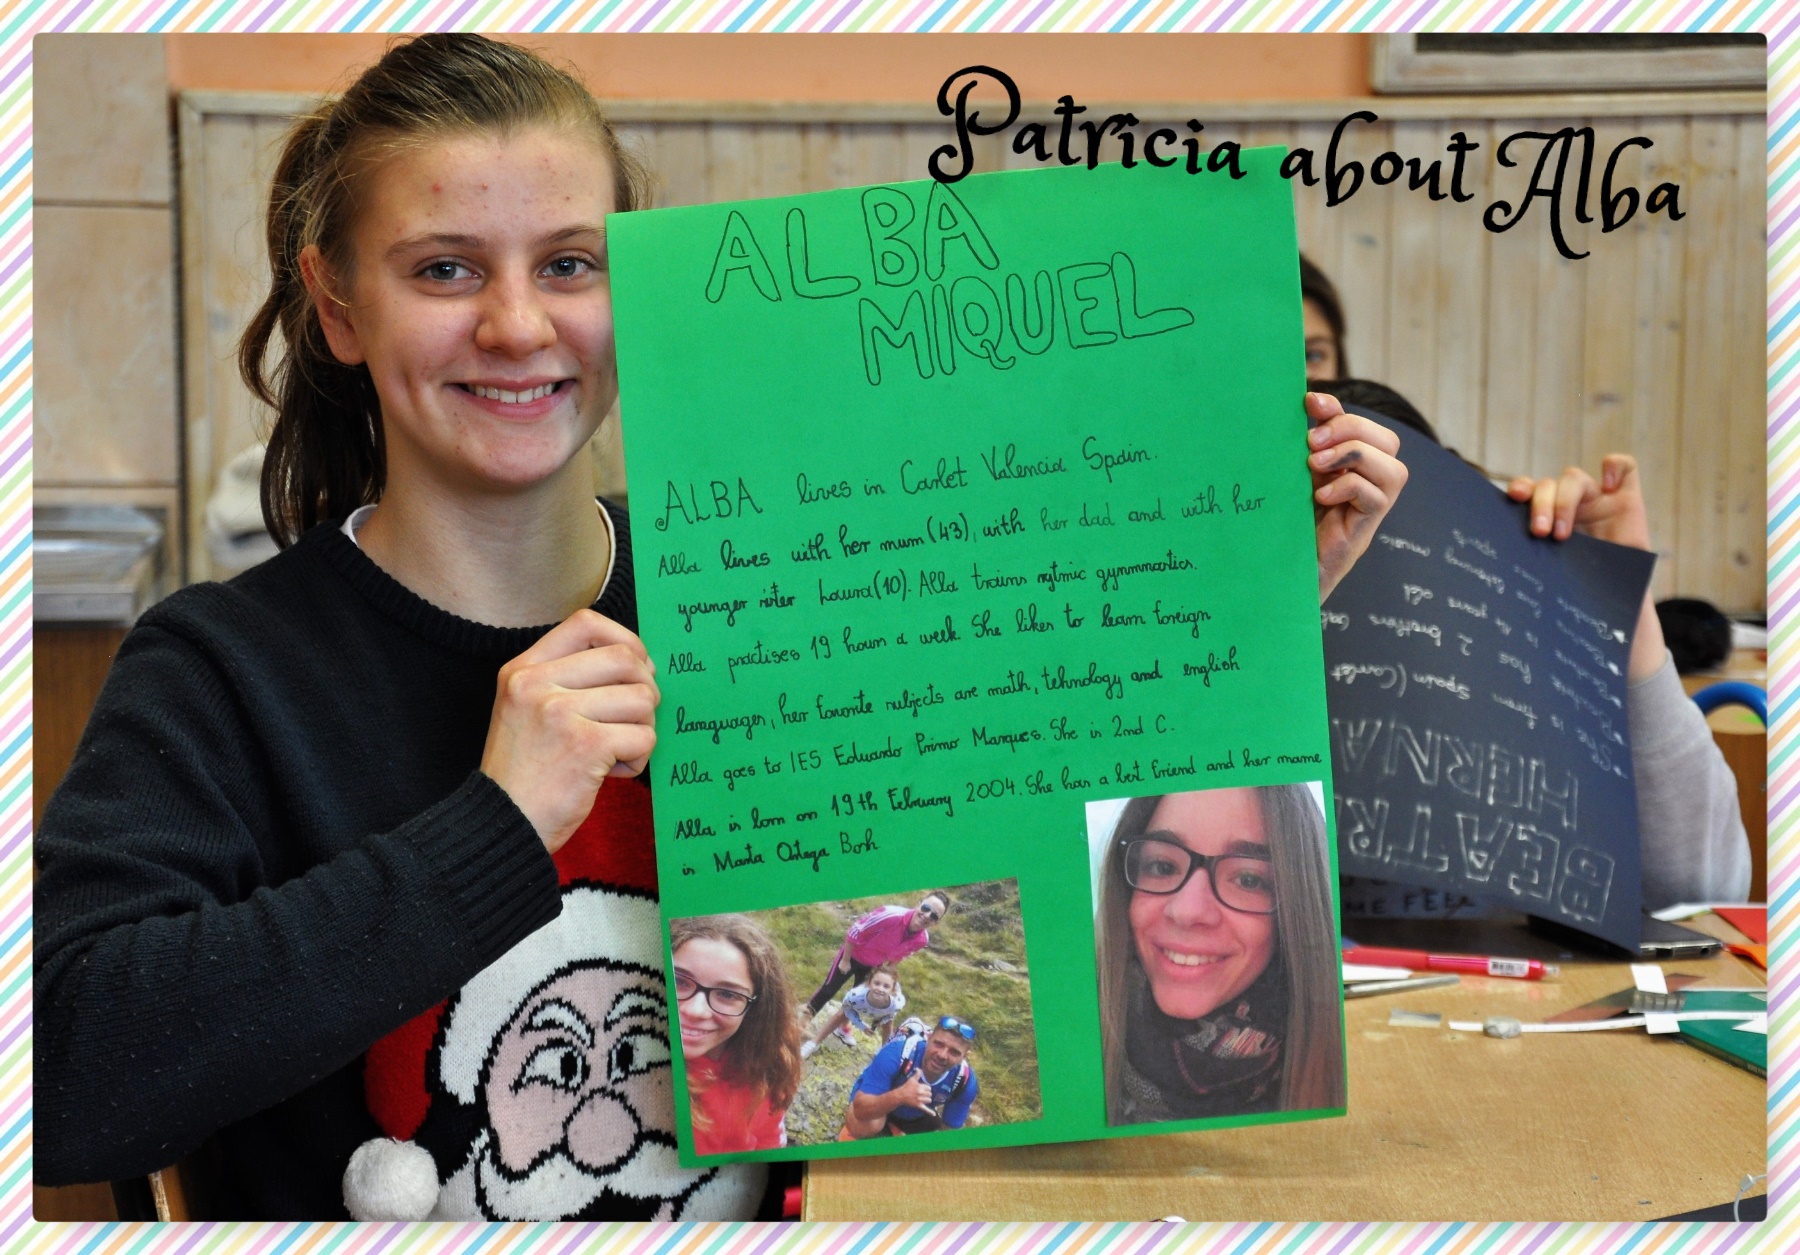 Patricia about Alba
ALBA
MIQUEL
ALBA lives in Carlet Valencia Spain.
Alba lives with her mum (43), with her dad and with her
younger sister Laura (10). Alba trains rytmic gymnmastics.
Alba practises 19 hours a week. She likes to learn foreign
languages, her favorite subjects are math, tehnology and english
Alba goes to IES Eduardo Primo Marques. She is 2nd C.
Alba is born on 19th February 2004. She has a best friend and her name
is Marta Ortega Bosh
BEATR
HERNA
She is from Spain (Carlet
has 2 brothers
is 14 years old
listening music
sports
ME FEEL